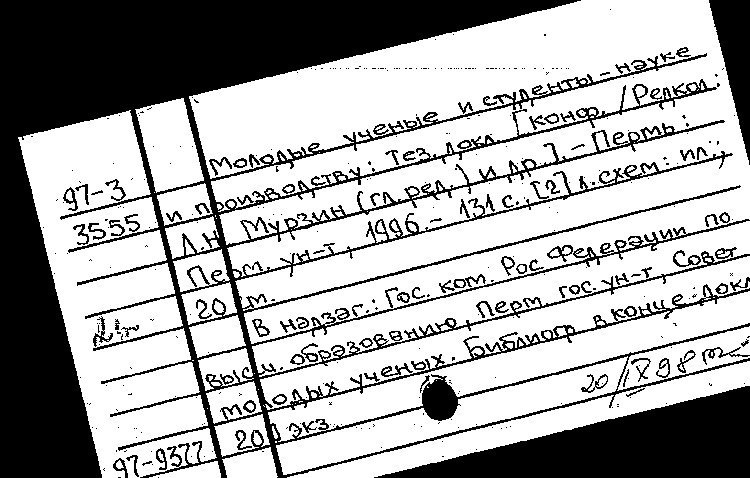 Молодые ученые и студенты – науке
97-3
и производству: Тез. докл. [конф. / Редкол.:
3555
Л.Н. Мурзин (гл. ред.) и др.]. – Пермь:
Перм. ун-т, 1996. – 131 с., [2] л. схем: ил.;
20 см.
В надзаг.: Гос. ком. Рос. Федерации по
высш. образованию, Перм. гос. ун-т, Совет
молодых ученых. Библиогр. в конце докл.
200 экз.
20/IX 98
97-9377